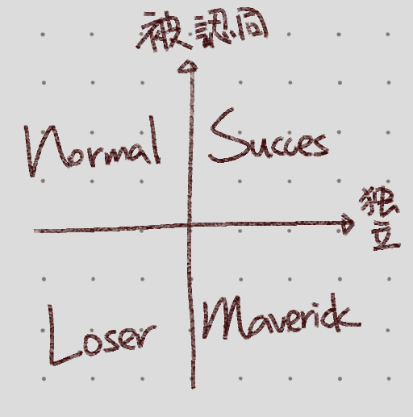 被認同
Normal
Succes
独
立
Loser
Maverick